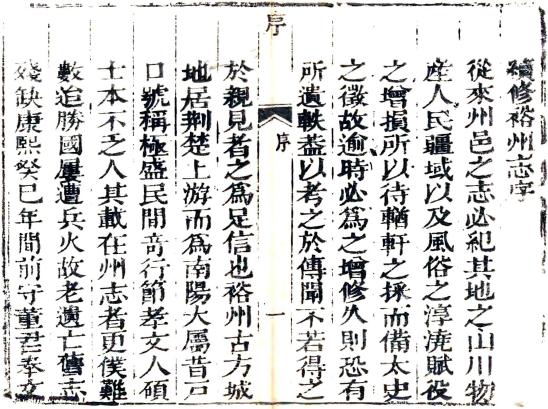 續修裕州志序
從來州邑之志必紀其地之山川物
産人民疆域以及風俗之淳澆賦役
之增損所以待輶軒之採而備太史
之徵故逾時必為之增修久則恐有
所遺軼葢以考之於傳聞不若得之
序
序
一
於親見者之為足信也裕州古方城
地居荆楚上游而為南陽大屬昔戸
口號稱極盛民間奇行節孝文人碩
士本不乏人其載在州志者更僕難
數迨勝國屢遭兵火故老遺亡舊志
殘缺康熙癸巳年間前守董君奉文